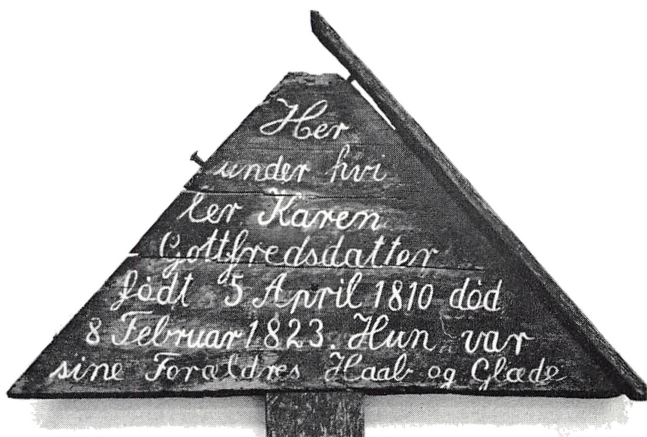 Her
under hvi
ler Karen
Gottfredsdatter
født 5 April 1810 død
8 Februar 1823. Hun var
sine Forældres Haab og Glæde